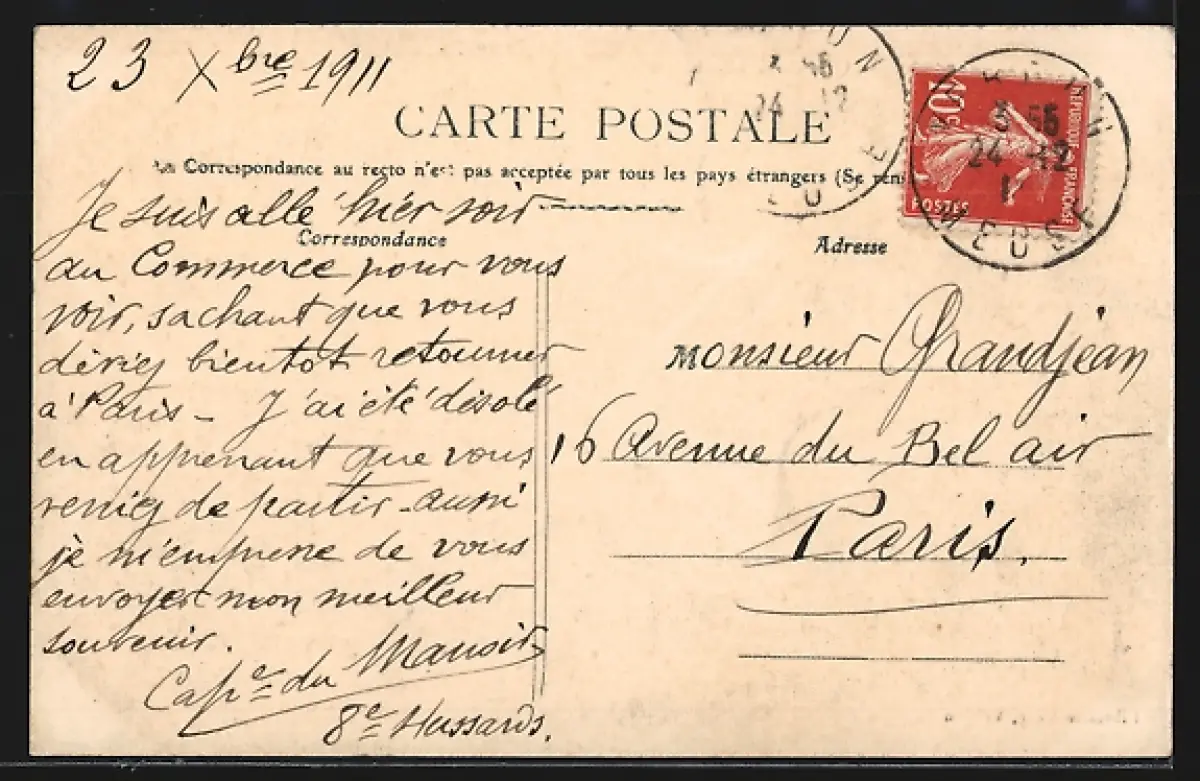 23 Xbre 1911
CARTE POSTALE
La Correspondance au recto n'est pas acceptée par tous les pays étrangers (Se rens
Correspondance
Adresse
Je suis allé hier soir
au Commerce pour vous
voir, sachant que vous
deviez bientot retourner
à Paris - J'ai été désolé
en apprenant que vous
veniez de partir - aussi
je m'empresse de vous
envoyer mon meilleur
souvenir.
Cape du Manoir
8e Hussards.
Monsieur Grandjean
16 Avenue du Bel air
Paris.
RÉPUBLIQUE FRANÇAISE
10c
POSTES
3 55
24 -12
11
MEUSE
24 12